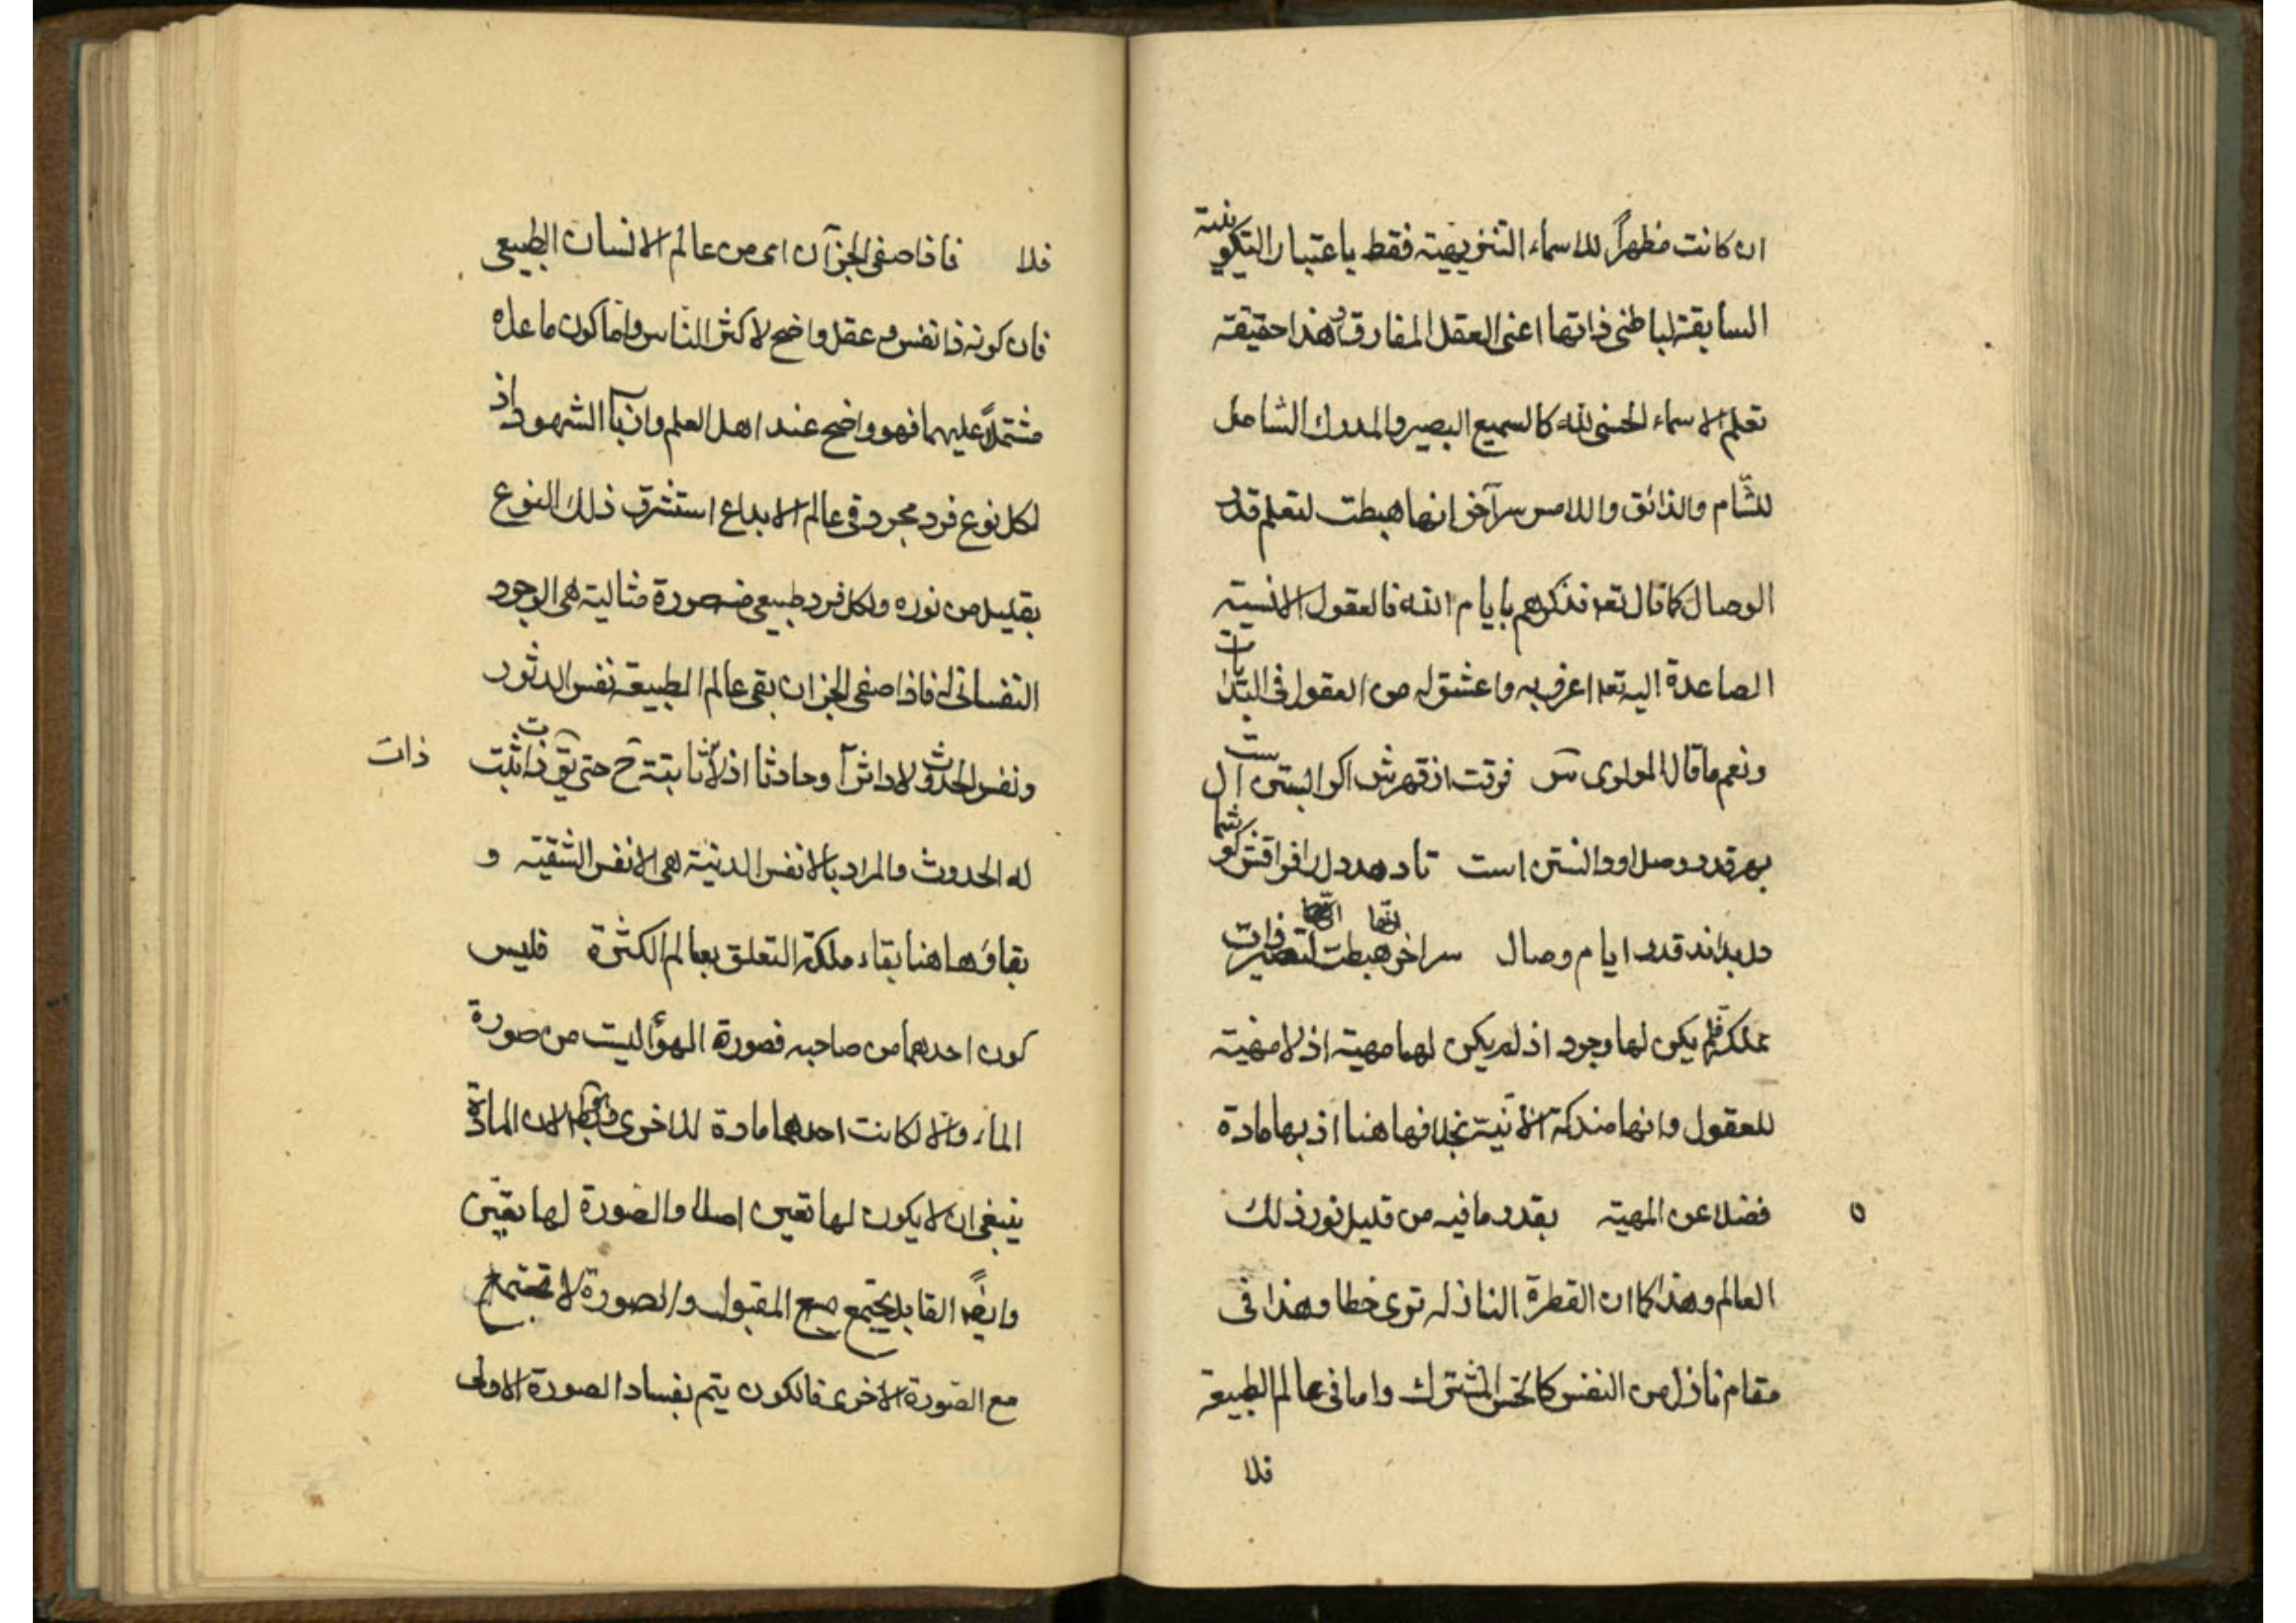 ان كانت مظهراً للاسماء التنزيهية فقط باعتبار التكوينية
السابقة لباطنى ذاتها اعنى العقل المفارق وهذا حقيقة
تعلم الاسماء الحسنى لله كالسميع البصير والمدرك الشامل
للشّام والذائق واللامس سرآخر انها هبطت لتعلم قدر
الوصال كما قال تعه فذكرهم بايام الله فالعقول الانسية
الصاعدة اليه تعه اعرف به واعشق له من العقول فى البدايات
ونعم ما قال المولوى س فرقت از قهرش اكر ابستن است
بهر قدر وصل او دانستن است تا دهد دل را فراقش كوشمال
دل بداند قدر ايام وصال سر اخر انها هبطت لتصير ذات
مملكة فلم يكن لها وجود اذ لم يكن لها مهية اذ لا مهية
للعقول وانها مندكة الانّية بخلافها هنا اذ بها مادة
فضلا عن المهية بقدر ما فيه من قليل نور ذلك
العالم وهذا كما ان القطرة النازلة ترى خطا وهذا فى
مقام نازل من النفس كالحس المشترك واما فى عالم الطبيعة
فلا
فلا فاذا صفى الجزآن اى من عالم الانسان الطبيعى
فان كونه ذا نفس وعقل واضح لاكثر الناس واما كون ما عداه
مشتملاً عليهما فهو واضح عند اهل العلم وارباب الشهود اذ
لكل نوع فرد مجرد فى عالم الابداع استشرق ذلك النوع
بقليل من نوره ولكل فرد طبيعى صورة مثالية هى الوجود
النفسانى له فاذا صفى الجزان بقى عالم الطبيعة نفس الدثور
ونفس الحدوث لا داثراً وحادثا اذ لا ثابتة ح حتى يق ذات ثبت
ذات
له الحدوث والمراد بالانفس الدنية هى الانفس الشقية و
بقاؤها هنا بقاء ملكة التعلق بعالم الكثرة فليس
كون احدهما من صاحبه فصورة الهواء ليست من صورة
الماء والا لكانت احدهما مادة للاخرى لان المادة
ينبغى ان لا يكون لها تعين اصلا والصورة لها تعين
وايضاً القابل يجتمع مع المقبول والصورة لا تجتمع
مع الصورة الاخرى فالكون يتم بفساد الصورة الاولى